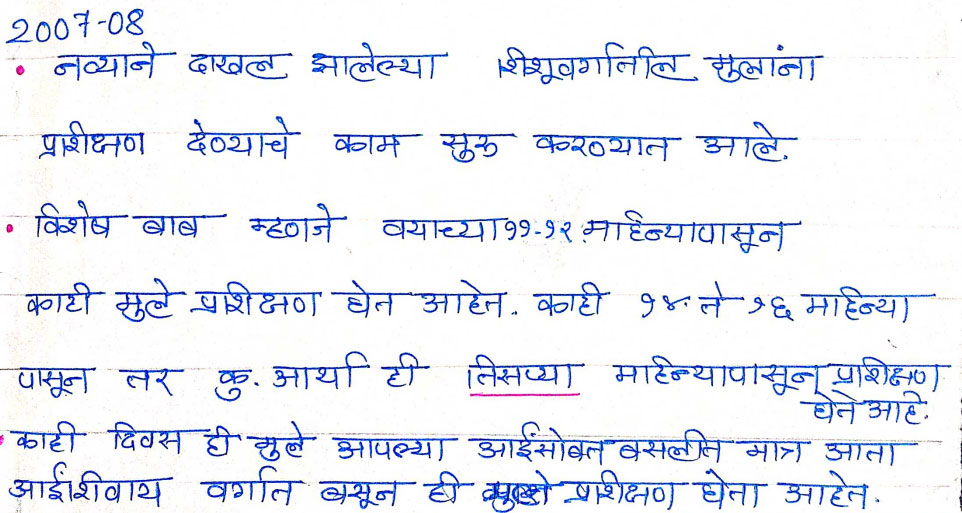 2007-08
• नव्याने दाखल झालेल्या शिशूवर्गातील मुलांना
प्रशिक्षण देण्याचे काम सुरु करण्यात आले.
• विशेष बाब म्हणजे वयाच्या ११-१२ महिन्यापासून
काही मुले प्रशिक्षण घेत आहेत. काही १४ ते १६ महिन्या
पासून तर कु. आर्या ही तिसऱ्या महिन्यापासून प्रशिक्षण
घेत आहे.
• काही दिवस ही मुले आपल्या आईसोबत बसलीत मात्र आता
आईशिवाय वर्गात बसून ही मुले प्रशिक्षण घेता आहेत.